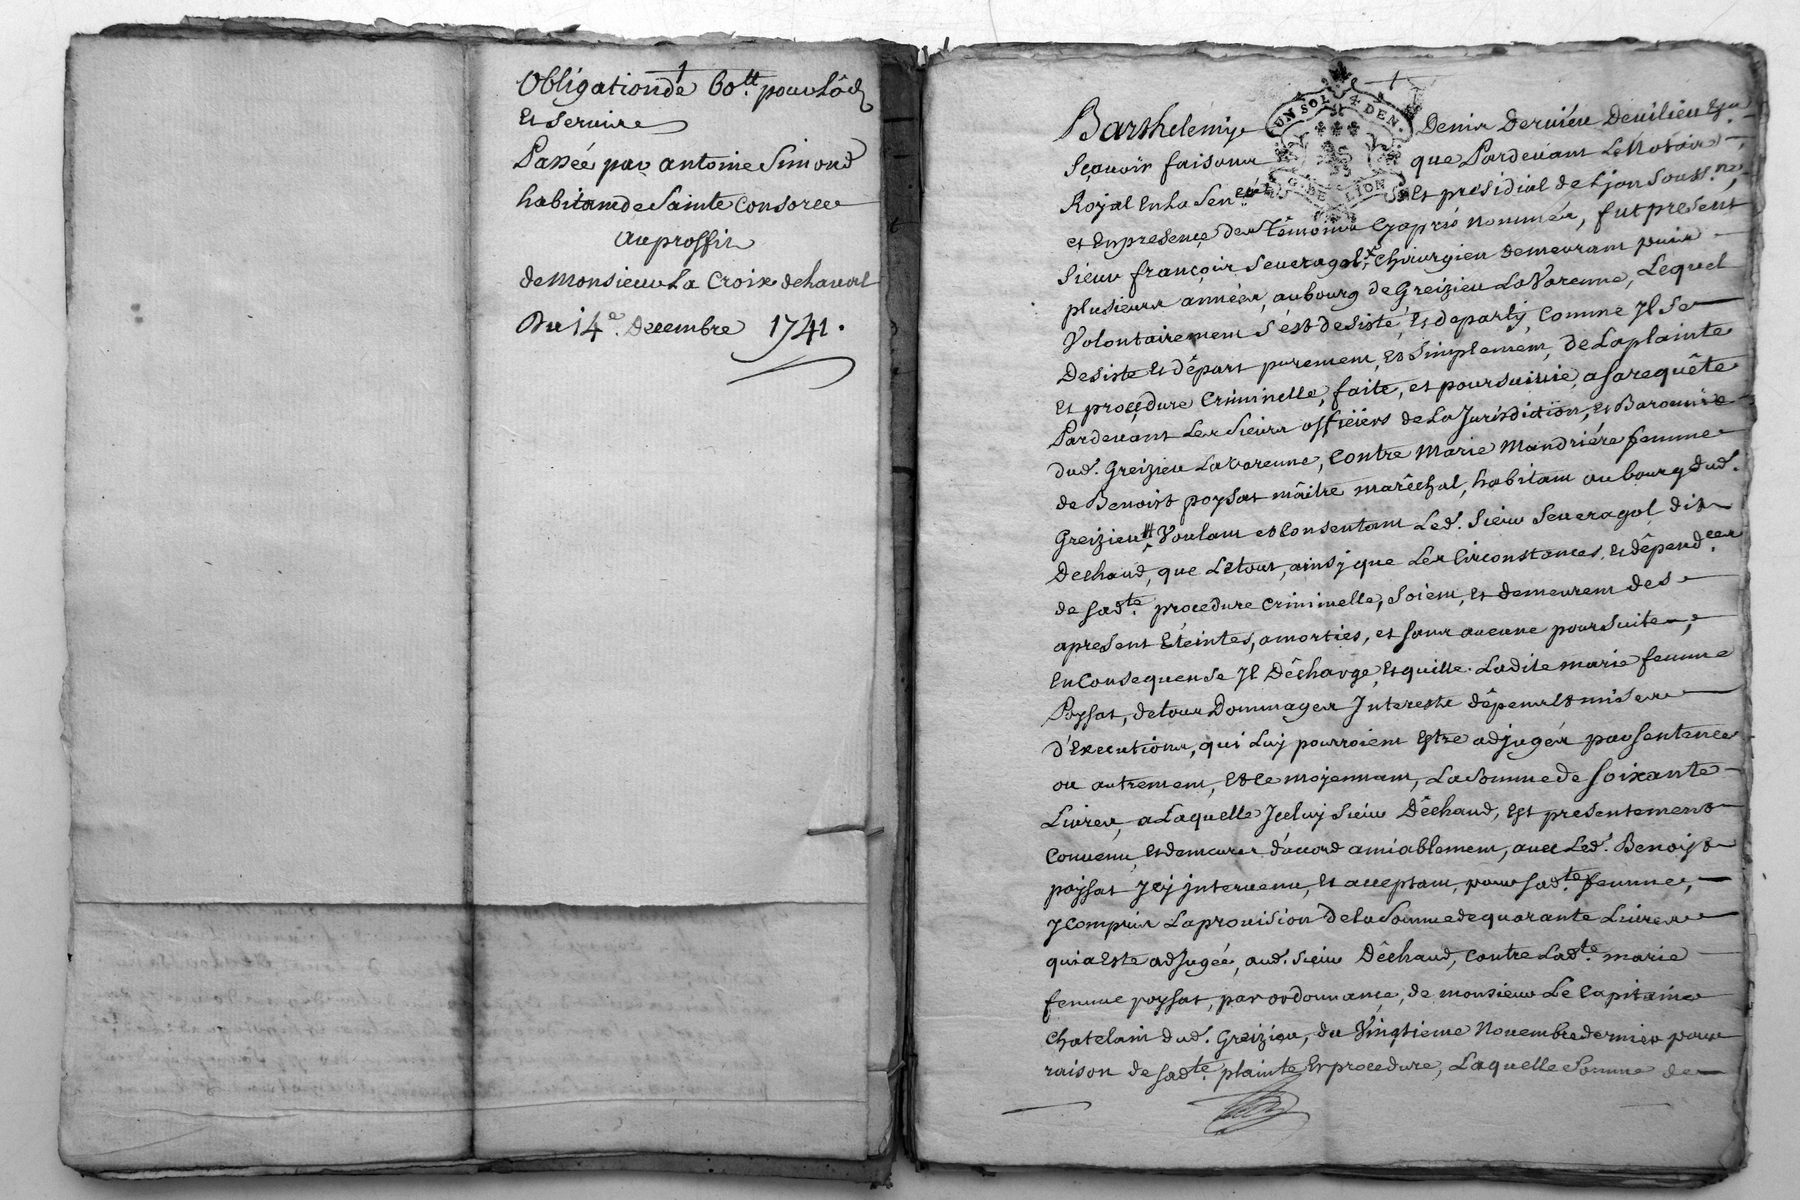 Obligation de 60.tt pour Lôd
Et Servire
Passée par antoine Simond
habitam de Sainte Consorce
Au proffit
de Monsieur La Croix de Laval
Du 14.e Decembre 1741.
UN. SOL. 4. DEN.
G. DE LION
Barthelemy Denis Dervieu Deuilieu
Sçavoir faisons que Pardeuant Le Notaire
Royal En La Sen.ée Et presidial de Lyon Souss.né,
et En presence des Témoins Cy apres nommés, fut present
Sieur françois Seueragol, Chirurgien demeurant puis
plusieurs années, au bourg de Greizieu La Varenne, Lequel
Volontairement S'est desisté, Et departy, Comme Jl Se
Desiste Et départ purement, Et Simplement, De La plainte
Et proçedure Criminelle, faite, et poursuivie, a sa requête
Pardeuant Les Sieurs officiers de La Jurisdiction, Et Baronnie
dud. Greizieu La Varenne, Contre Marie Mandriére femme
de Benoist poysat mâitre marêchal, habitant au bourg dud.
Greizieu Voulant et Consentant Led. Sieur Seueragol dit
Dechaud, que Le tout, ainsy que Les Circonstances Et dépend.ces
de Sad.te procedure Criminelle, Soient, Et demeurent des
apresent Eteintes, amorties, et Sans aucune poursuite,
En Consequense Jl Déchargé, Et quitte. Ladite marie femme
Poysat, de tous Dommages Jnterests dépens Et mises
d'Execution, qui Luy pourroient Estre adjugés par Sentence
ou autrement, Et Ce moyennant, La Somme de Soixante
Livres, a Laquelle Jceluy Sieur Déchaud, Est presentement
Conuenu, Et demeuré d'acord amiablement, auec Led. Benoist
poysat Jcy jnteruenu, Et acceptant, pour Sad.te femme,
y Compris La prouision de la Somme de quarante Liures
qui a Esté adjugée, aud. Sieur Déchaud, Contre Lad.te marie
femme poysat, par ordonnance, de monsieur Le Capitaine
Chatelain dud. Greizieu, du Vingtieme Nouembre dernier pour
raison de Sad.te plainte Et procedure, Laquelle Somme de